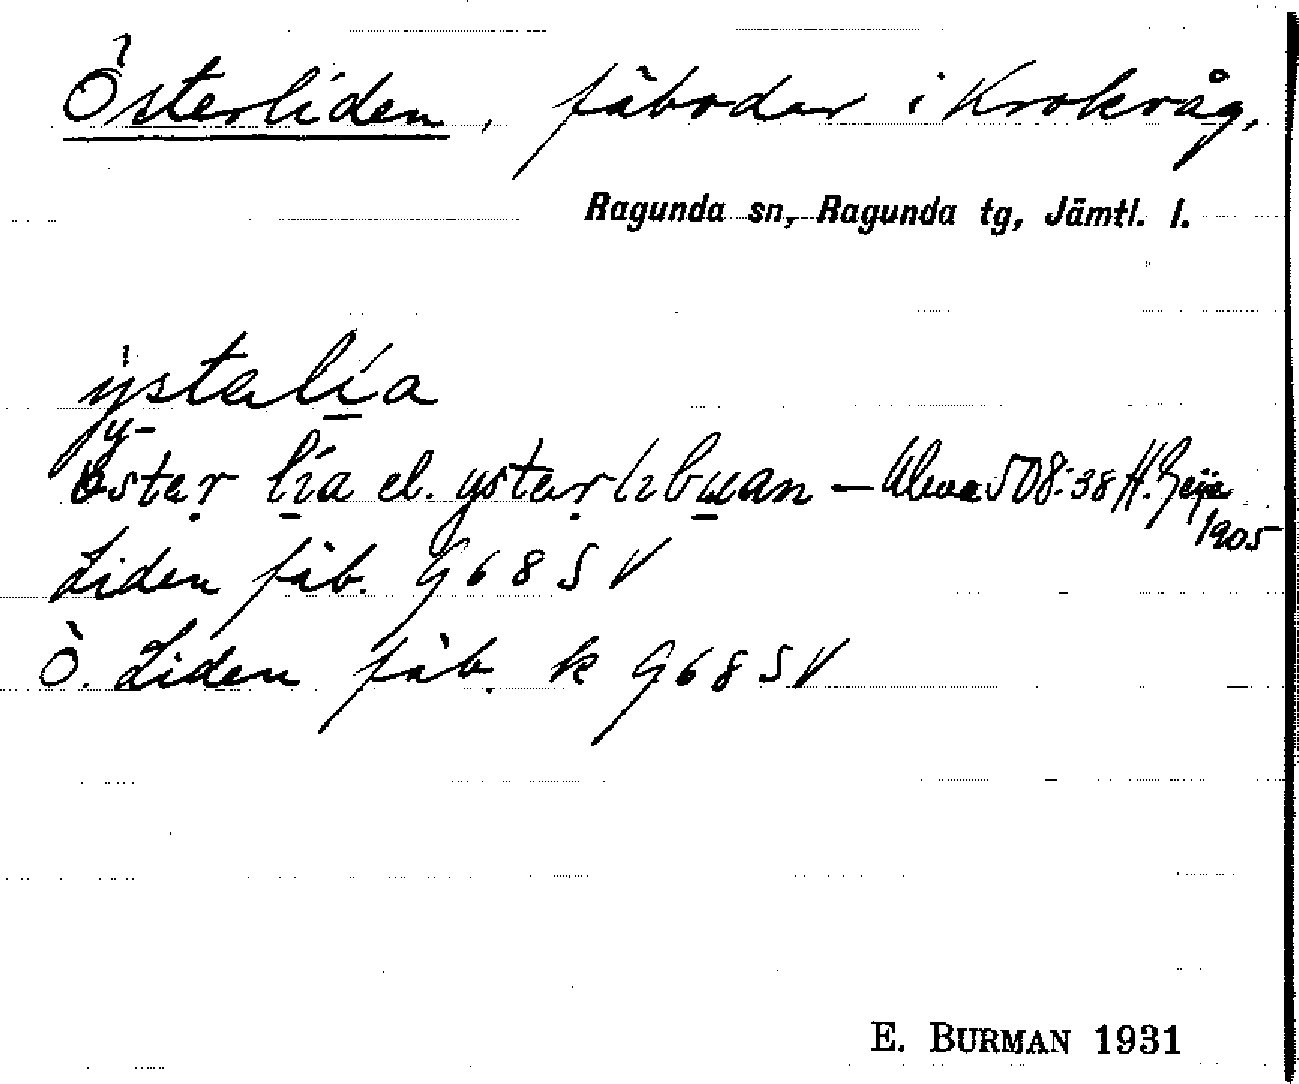 Österliden, fäbodar i Krokvåg,
Ragunda sn, Ragunda tg, Jämtl. l.
ÿstalía
y-
östeṛ lía el. ysteṛ líbuan – Ulma 508:38 H. Geijer
1905
Liden fäb. G 68 SV
Ö. Liden fäb. k G 68 SV
E. BURMAN 1931